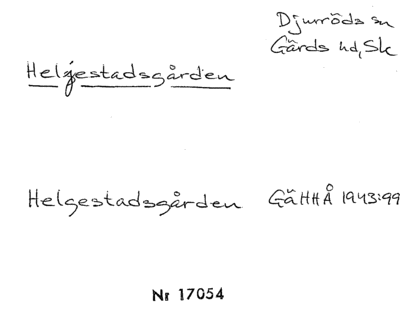 Djurröds sn
Gärds hd, Sk
Helgestadsgården
Helgestadsgården GäHHÅ 1943:99
Nr 17054